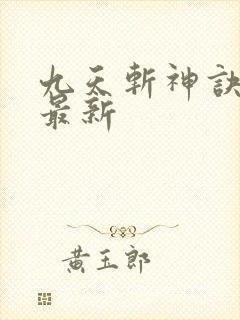 九天斬神訣
最新
黃玉郎